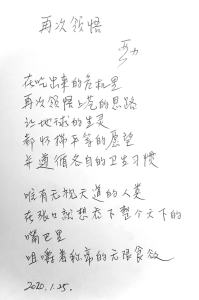 再次领悟
在吃出来的危机里
再次领悟上苍的思路
让地球的生灵
都怀揣平等的愿望
并遵循各自的卫生习惯
唯有无视天道的人类
在张口就想吞下整个天下的
嘴巴里
咀嚼着称帝的无限食欲
2020.1.25.